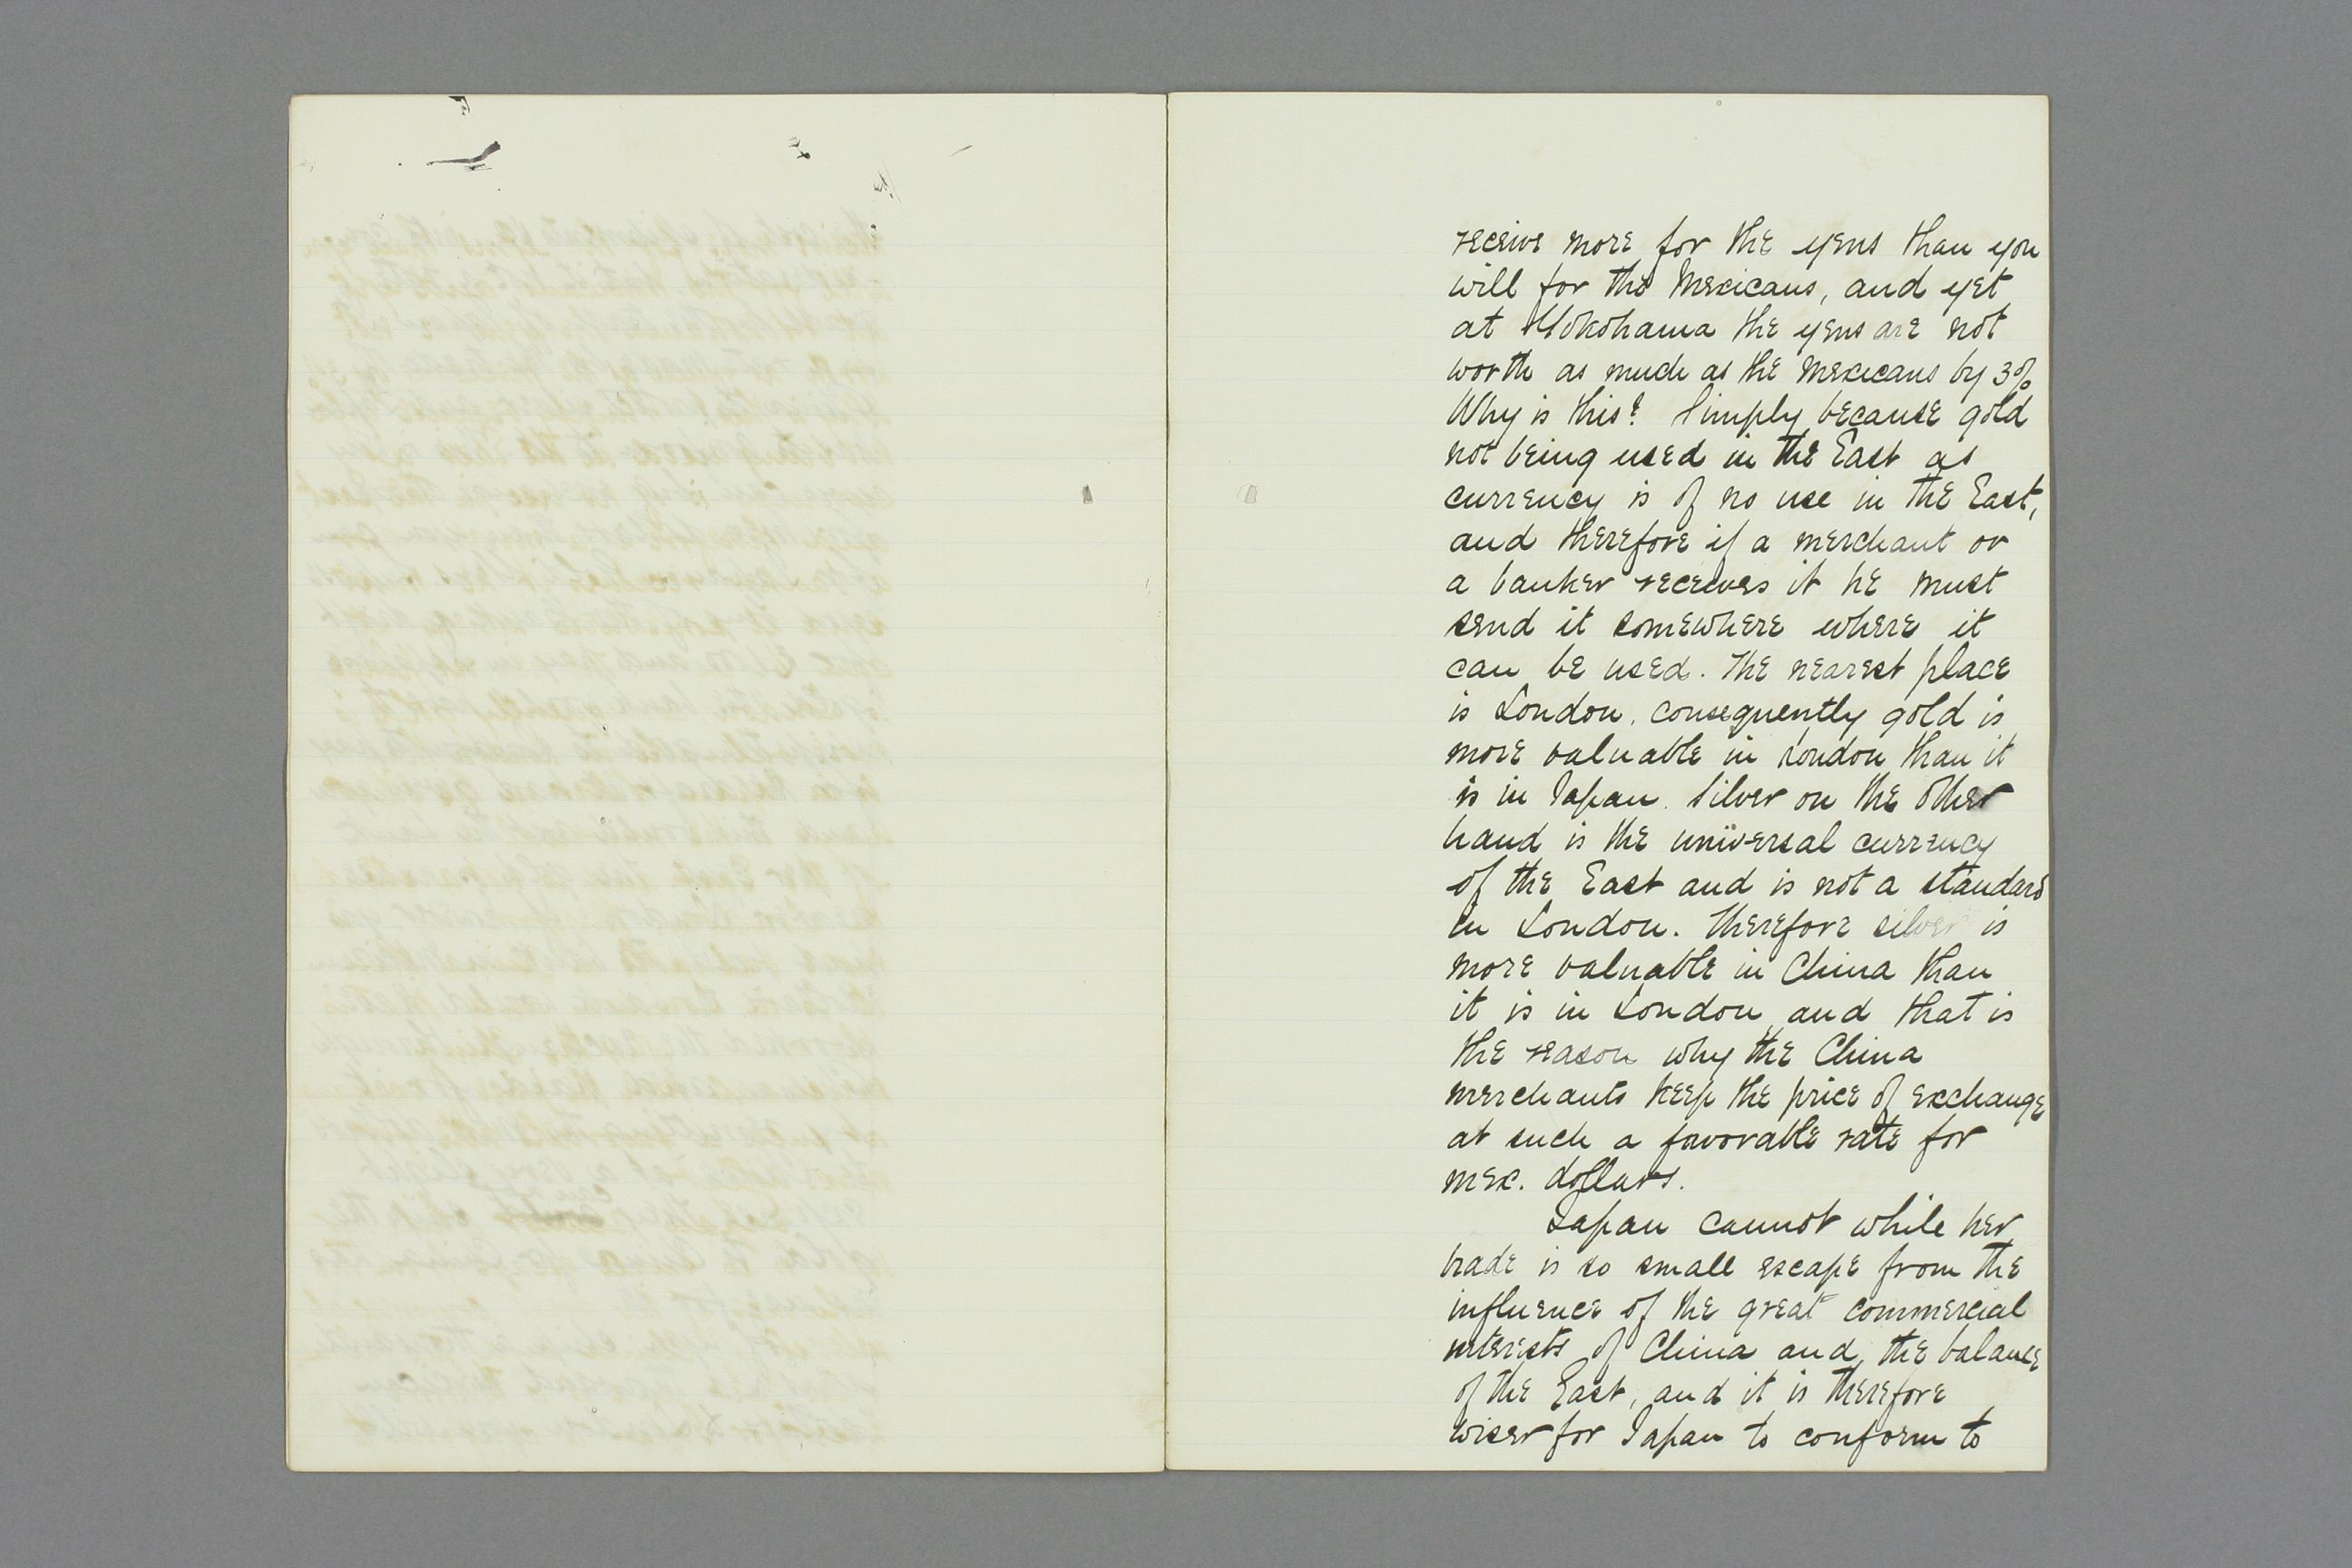 receive more for the yens than you
will for the Mexicans, and yet
at Yokohama the yens are not
worth as much as the Mexicans by 3%
Why is this? Simply because gold
not being used in the East as
currency is of no use in the East,
and therefore if a merchant or
a banker receives it he must
send it somewhere where it
can be used. The nearest place
is London, consequently gold is
more valuable in London than it
is in Japan. Silver on the other
hand is the universal currency
of the East and is not a standard
in London. Therefore silver is
more valuable in China than
it is in London and that is
the reason why the China
merchants keep the price of exchange
at such a favorable rate for
mex. dollars.
Japan cannot while her
trade is so small escape from the
influence of the great commercial
interests of China and the balance
of the East, and it is therefore
wiser for Japan to conform to